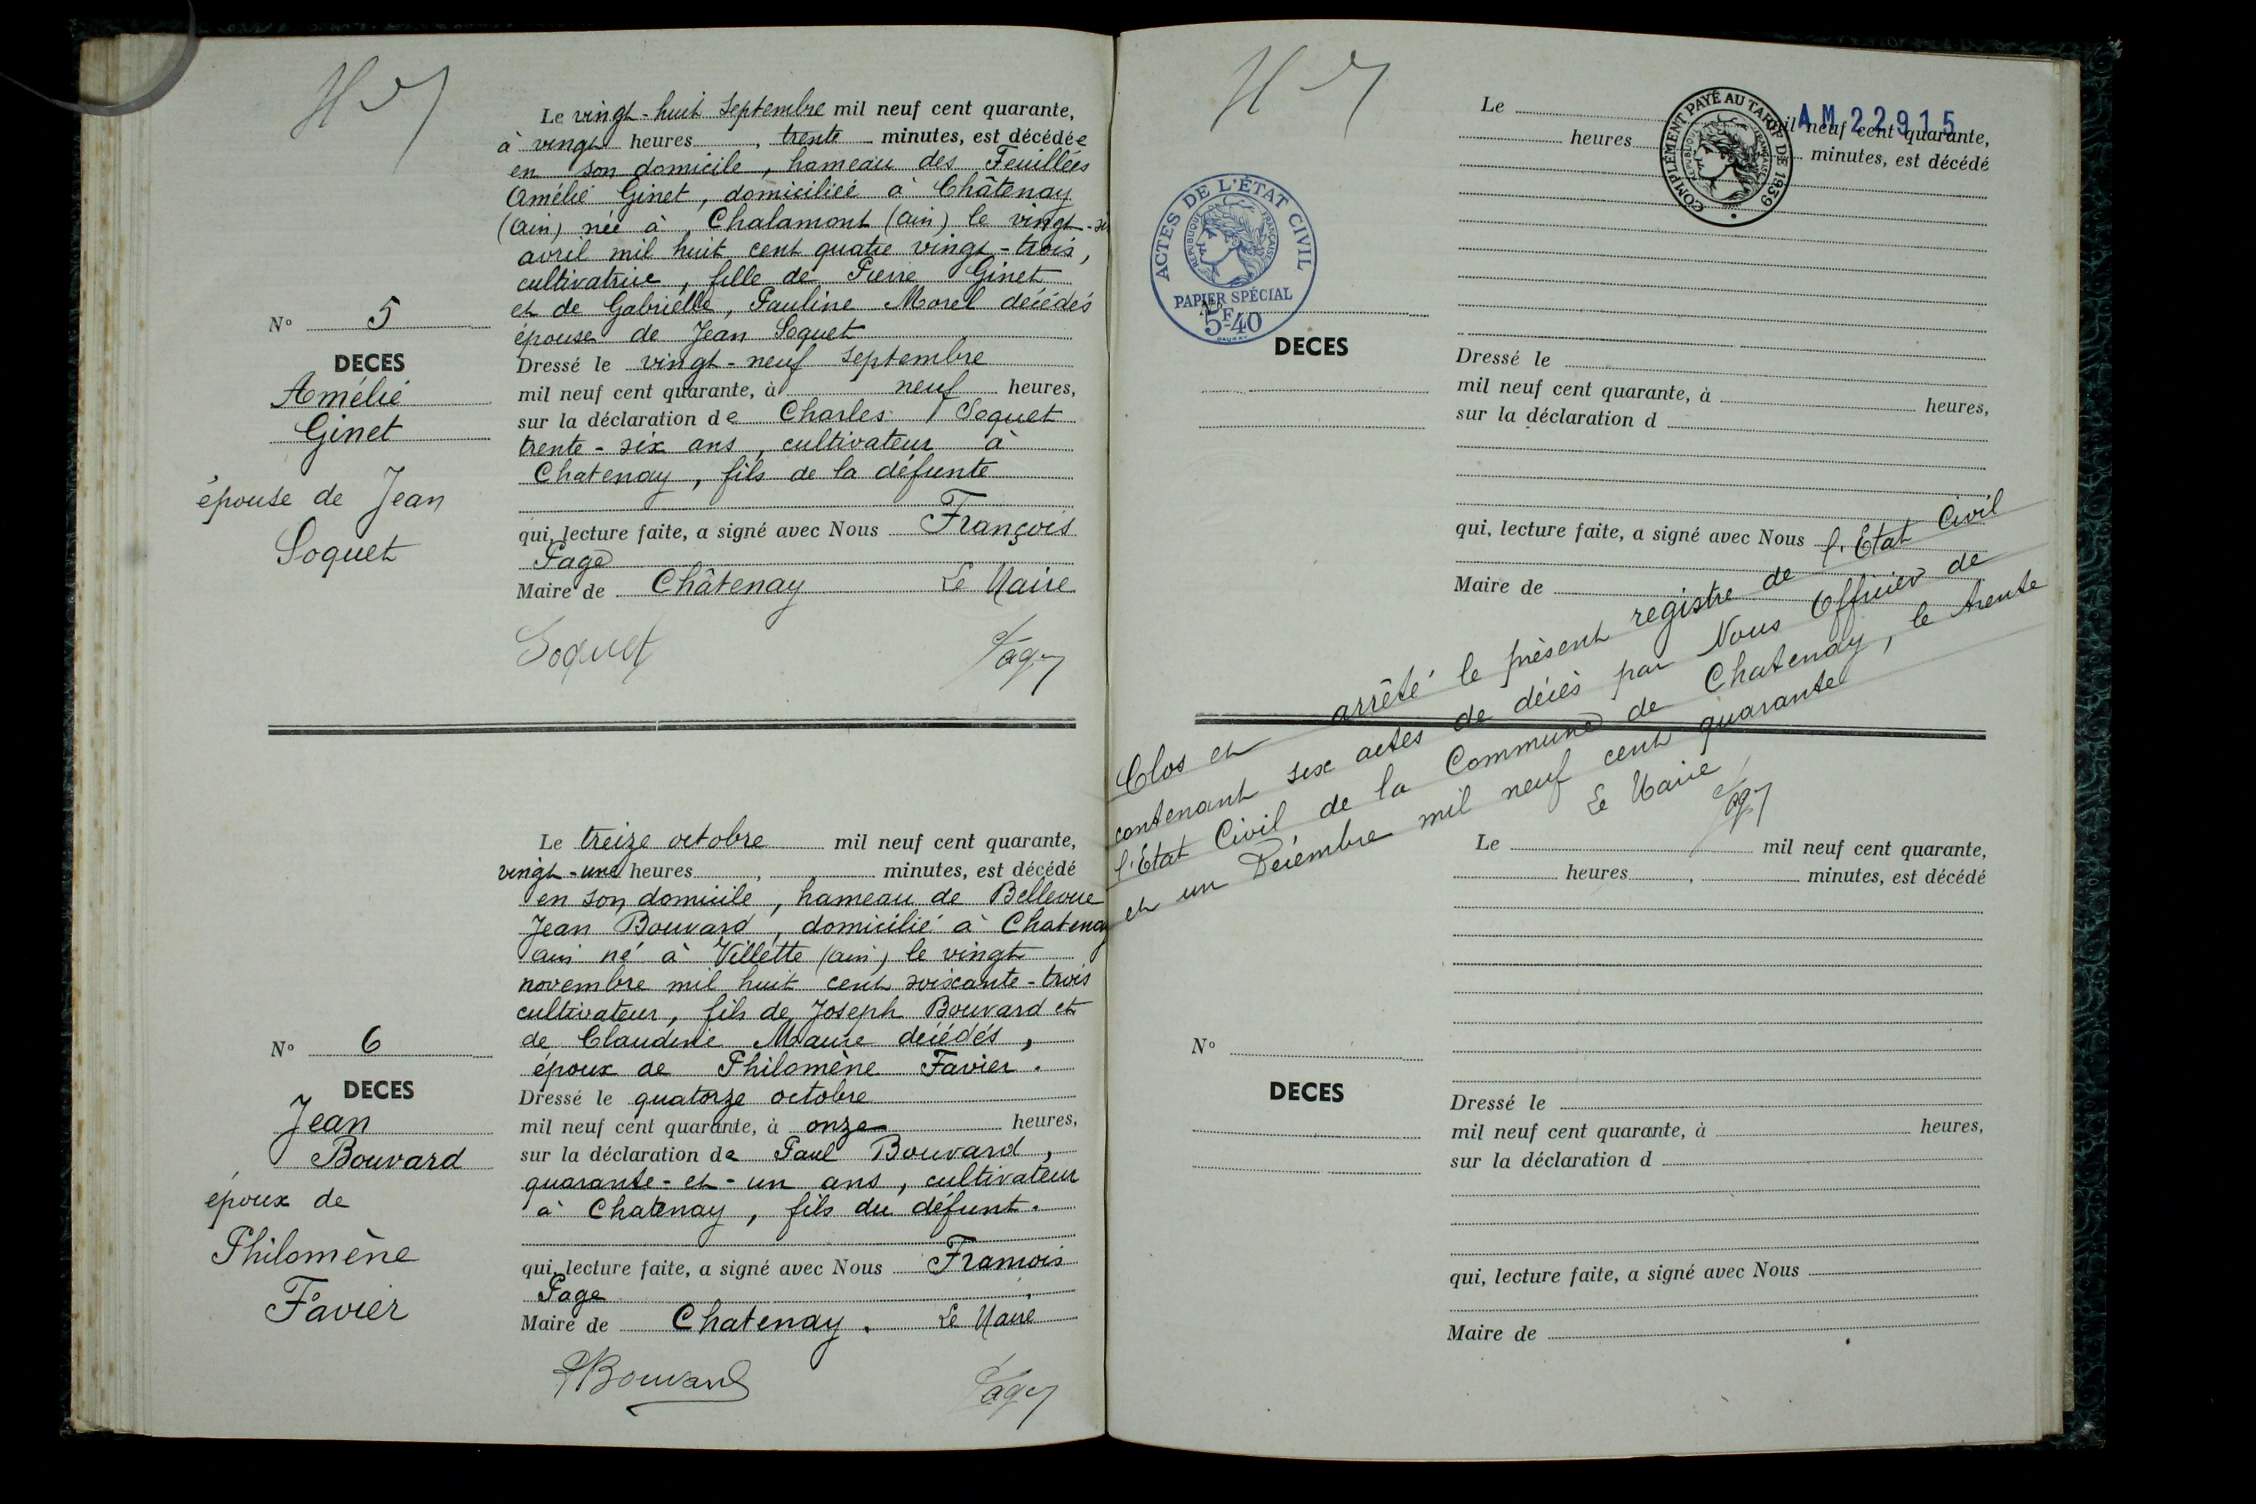 Le vingt-huit septembre mil neuf cent quarante,
à vingt heures, trente minutes, est décédée
en son domicile, hameau des Feuillées
Amélie Ginet, domiciliée à Châtenay
(Ain) née à Chalamont (Ain) le vingt-six
avril mil huit cent quatre vingt-trois,
cultivatrice, fille de Pierre Ginet
et de Gabrielle, Pauline Morel décédés
épouse de Jean Soquet
Dressé le vingt-neuf septembre
mil neuf cent quarante, à neuf heures,
sur la déclaration de Charles Soquet
trente-six ans, cultivateur à
Chatenay, fils de la défunte
qui, lecture faite, a signé avec Nous François
Page
Maire de Châtenay Le Maire
Soquet Page
N° 5
DECES
Amélie
Ginet
épouse de Jean
Soquet
Le treize octobre mil neuf cent quarante,
vingt-une heures, minutes, est décédé
en son domicile, hameau de Bellevue
Jean Bouvard, domicilié à Chatenay
Ain né à Villette (Ain) le vingt
novembre mil huit cent soixante-trois
cultivateur, fils de Joseph Bouvard et
de Claudine Maure décédés,
époux de Philomène Favier.
Dressé le quatorze octobre
mil neuf cent quarante, à onze heures,
sur la déclaration de Paul Bouvard,
quarante-et-un ans, cultivateur
à Chatenay, fils du défunt.
qui, lecture faite, a signé avec Nous François
Page
Maire de Chatenay. Le Maire
PBouvard Page
N° 6
DECES
Jean
Bouvard
époux de
Philomène
Favier
Le mil neuf cent quarante,
heures minutes, est décédé
COMPLÉMENT PAYÉ AU TARIF DE 1939
RÉPUBLIQUE FRANÇAISE
AM 22915
ACTES DE L'ÉTAT CIVIL
RÉPUBLIQUE FRANÇAISE
PAPIER SPÉCIAL
5F40
N°
DECES
Dressé le
mil neuf cent quarante, à heures,
sur la déclaration d
qui, lecture faite, a signé avec Nous
Maire de
Clos et arrêté le présent registre de l'Etat Civil
contenant six actes de décès par Nous Officier de
l'Etat Civil de la Commune de Chatenay, le trente
et un Décembre mil neuf cent quarante
Le Maire
Page
Le mil neuf cent quarante,
heures, minutes, est décédé
N°
DECES
Dressé le
mil neuf cent quarante, à heures,
sur la déclaration d
qui, lecture faite, a signé avec Nous
Maire de